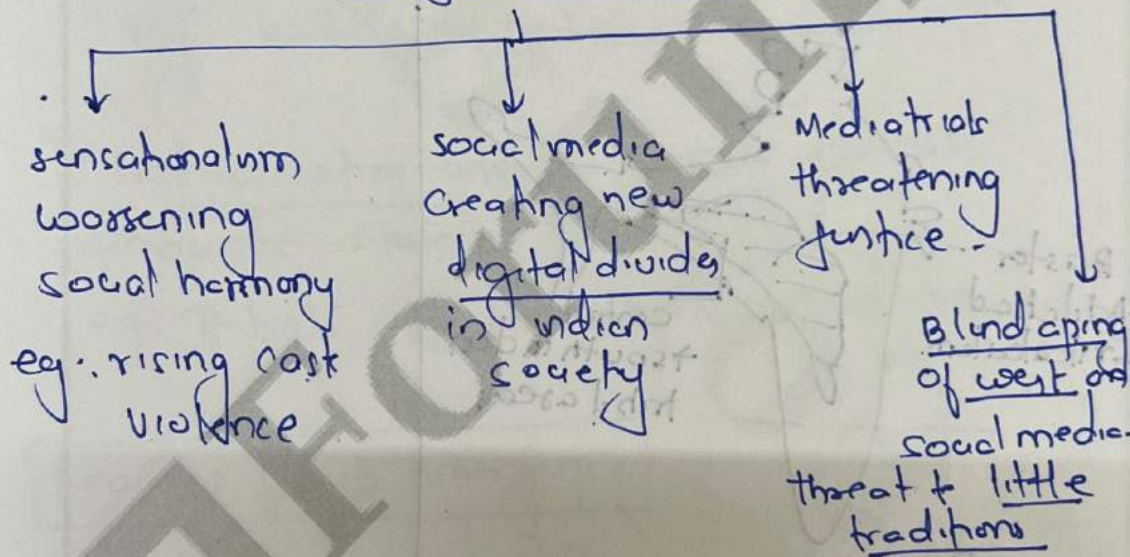 sensationalism
worsening
social harmony
eg: rising caste
violence
social media
creating new
digital divides
in indian
society
Media trials
threatening
justice.
Blind aping
of west on
social media
threat to little
traditions
ForumI